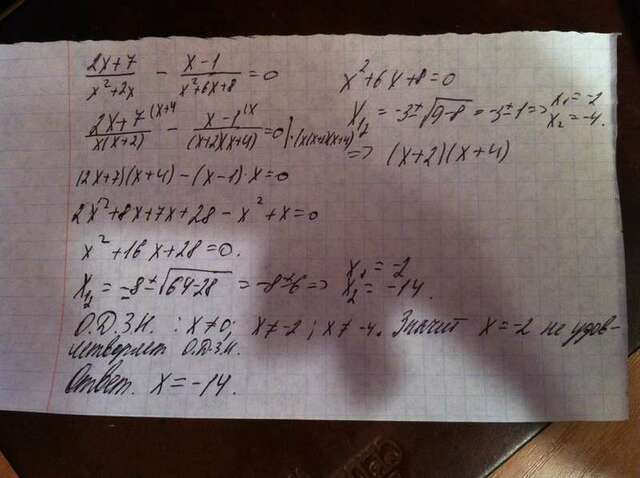 (2x+7)/(x²+2x) - (x-1)/(x²+6x+8) = 0
x²+6x+8=0
x₁,₂ = -3±√(9-8) = -3±1 => x₁=-2 x₂=-4.
=> (x+2)(x+4)
(2x+7)/(x(x+2)) |(x+4 - (x-1)/((x+2)(x+4)) |x =0 |·(x(x+2)(x+4)
(2x+7)(x+4)-(x-1)·x=0
2x²+8x+7x+28-x²+x=0
x²+16x+28=0.
x₁,₂ = -8±√(64-28) = -8±6 => x₁=-2 x₂=-14.
О.Д.З.Н. : x≠0; x≠-2; x≠-4. Значит x=-2 не удов-
летворяет О.Д.З.Н.
Ответ. x=-14.